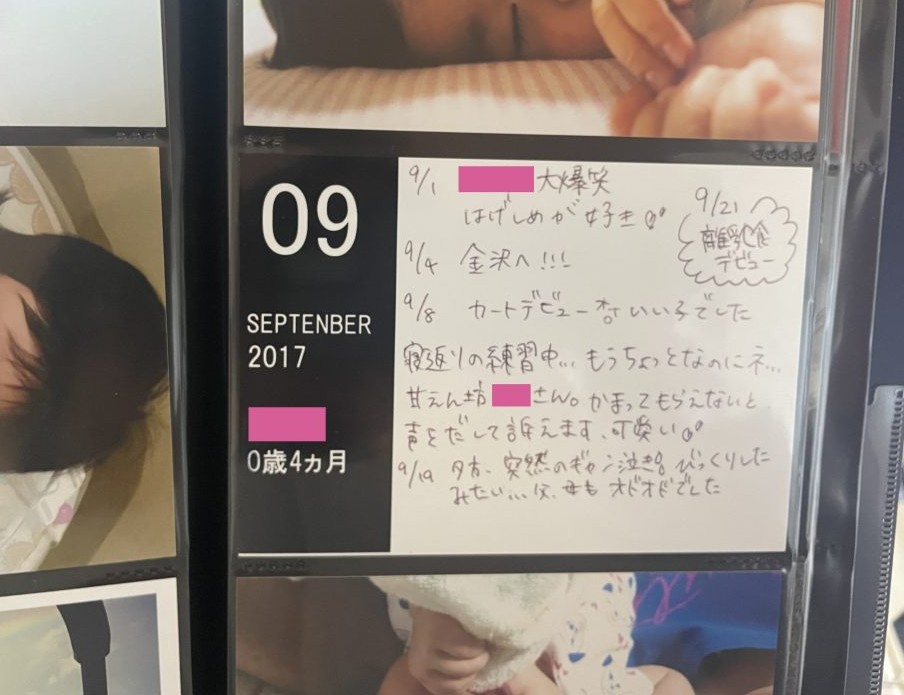 09
SEPTENBER
2017
0歳4ヵ月
9/1 大爆笑
はげしめが好き
9/21
離乳食
デビュー
9/4 金沢へ!!!
9/8 カートデビュー いい子でした
寝返りの練習中... もうちょっとなのにネ...
甘えん坊 さん。かまってもらえないと
声をだして訴えます、可愛い
9/19 夕方、突然のギャン泣き びっくりした
みたい... 父、母も オドオドでした